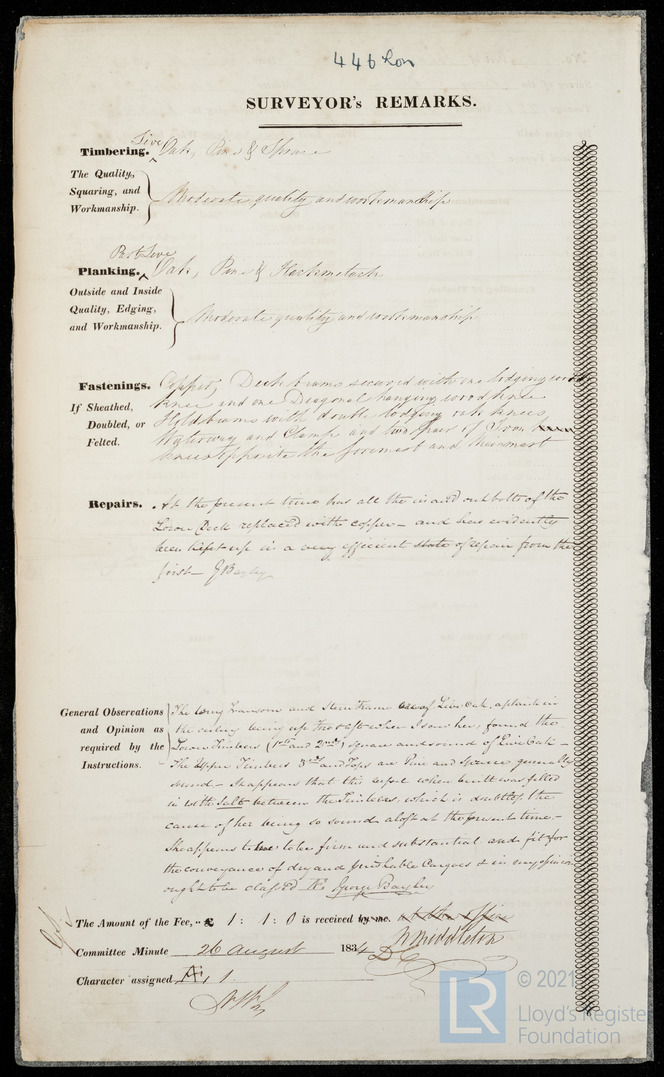 446 Lon
SURVEYOR's REMARKS.
Live
Timbering. Oak, Pine & Spruce
The Quality,
Squaring, and
Workmanship.
Moderate quality and workmanship
Part Live
Planking. Oak, Pine & Hackmatack
Outside and Inside
Quality, Edging,
and Workmanship.
Moderate quality and workmanship
Fastenings. Copper, Deck beams secured with one lodging wood
If Sheathed, knee and one Diagonal hanging wood knee
Doubled, or Hold beams with double lodging oak knees
Felted. Waterway and Clamp and two pair of Iron
knees opposite the foremast and mainmast
Repairs. At the present time has all the in and out bolts of the
Lower Deck replaced with copper - and has evidently
been kept up in a very efficient state of repair from the
first - G Bayley
General Observations
and Opinion as
required by the
Instructions.
The Wing Transom and Stern Frame are of Live Oak, a plank in
the ceiling being up fore & aft when I saw her, found the
Lower Timbers (1st and 2nd) square and sound of Live Oak -
The Upper Timbers 3rd and Tops are Pine and Spruce generally
sound - It appears that this vessel when built was filled
in with Salt between the Timbers, which is doubtless the
cause of her being so sound aloft at the present time -
She appears to be firm and substantial and fit for
the conveyance of dry and perishable Cargoes & in my opinion
ought to be classed George Bayley
The Amount of the Fee, £ 1 : 1 : 0 is received by me. at the office
N Middleton
Committee Minute 26 August 1834
Character assigned A 1
© 2021
LR
Lloyd's Register
Foundation